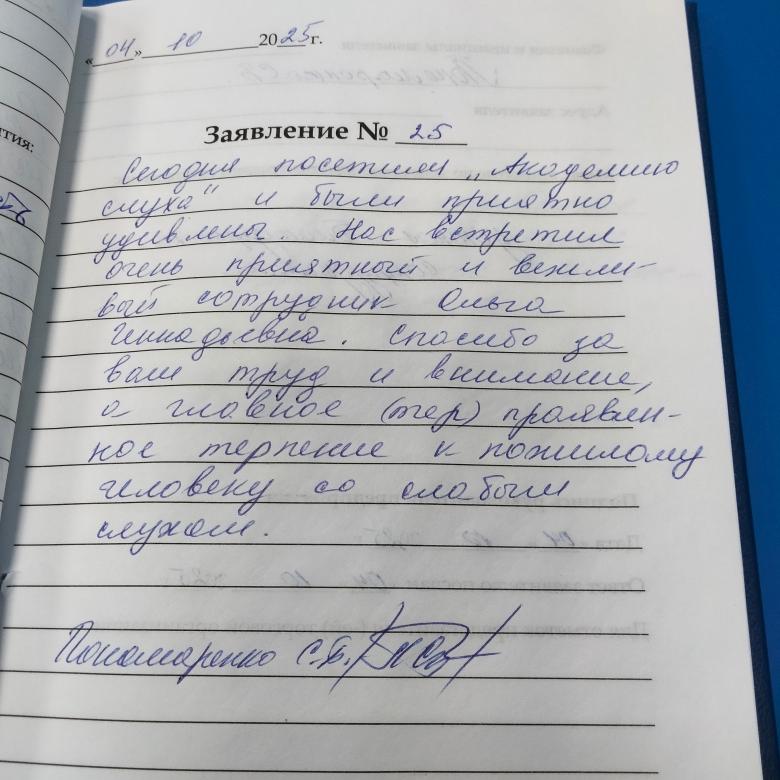 «04» 10 2025 г.
тия:
Заявление № 25
Сегодня посетили „Академию
слуха" и были приятно
удивлены. Нас встретил
очень приятный и вежли-
вый сотрудник Ольга
Геннадьевна. Спасибо за
ваш труд и внимание,
а главное (тер) проявлен-
ное терпение к пожилому
человеку со слабым
слухом.
Пономаренко С.Б.